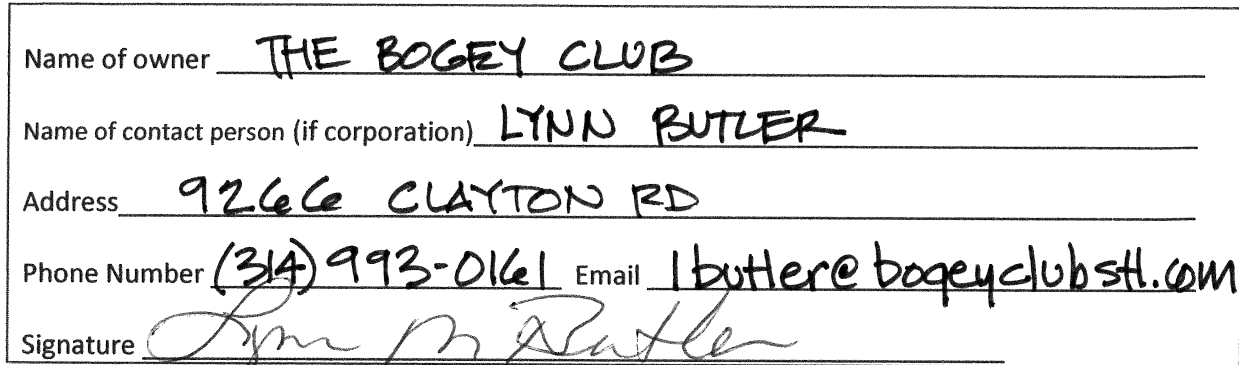 Name of owner THE BOGEY CLUB
Name of contact person (if corporation) LYNN BUTLER
Address 9266 CLAYTON RD
Phone Number (314) 993-0161 Email lbutler@bogeyclubstl.com
Signature Lynn M Butler